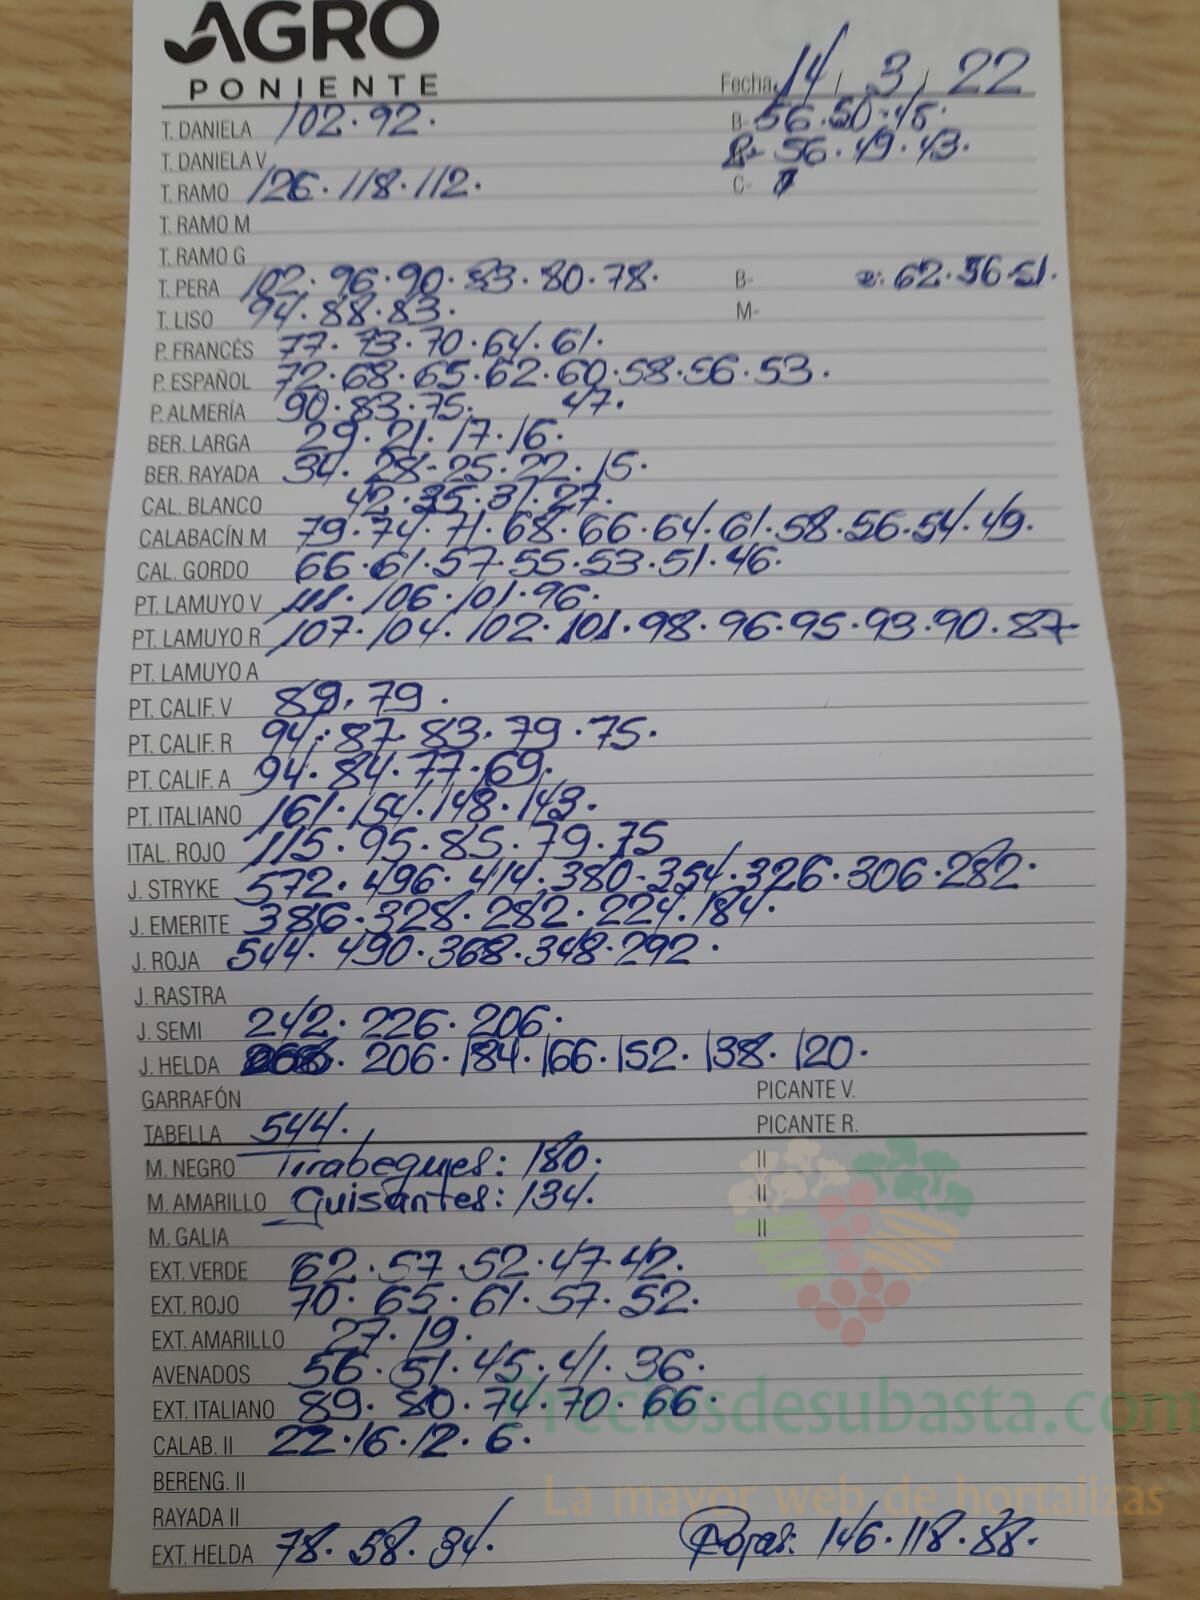 AGRO
PONIENTE
Fecha: 14 / 3 / 22
T. DANIELA 102. 92. B- 56. 50. 45.
T. DANIELA V 56. 49. 43.
T. RAMO 126. 118. 112. C-
T. RAMO M
T. RAMO G
T. PERA 102. 96. 90. 83. 80. 78. B- 62. 56. 51.
T. LISO 94. 88. 83. M-
P. FRANCÉS 77. 73. 70. 64. 61.
P. ESPAÑOL 72. 68. 65. 62. 60. 58. 56. 53.
P. ALMERÍA 90. 83. 75. 47.
BER. LARGA 29. 21. 17. 16.
BER. RAYADA 34. 28. 25. 22. 15.
CAL. BLANCO 42. 35. 31. 27.
CALABACÍN M 79. 74. 71. 68. 66. 64. 61. 58. 56. 54. 49.
CAL. GORDO 66. 61. 57. 55. 53. 51. 46.
PT. LAMUYO V 111. 106. 101. 96.
PT. LAMUYO R 107. 104. 102. 101. 98. 96. 95. 93. 90. 87.
PT. LAMUYO A
PT. CALIF. V 89. 79.
PT. CALIF. R 94. 87. 83. 79. 75.
PT. CALIF. A 94. 84. 77. 69.
PT. ITALIANO 161. 154. 148. 143.
ITAL. ROJO 115. 95. 85. 79. 75
J. STRYKE 572. 496. 414. 380. 354. 326. 306. 282.
J. EMERITE 386. 328. 282. 224. 184.
J. ROJA 544. 490. 368. 348. 292.
J. RASTRA
J. SEMI 242. 226. 206.
J. HELDA 206. 184. 166. 152. 138. 120.
GARRAFÓN PICANTE V.
TABELLA 544. PICANTE R.
M. NEGRO Tirabeques: 180. II
M. AMARILLO Guisantes: 134. II
M. GALIA II
EXT. VERDE 62. 57. 52. 47. 42.
EXT. ROJO 70. 65. 61. 57. 52.
EXT. AMARILLO 27. 19.
AVENADOS 56. 51. 45. 41. 36.
Preciosdesubasta.com
EXT. ITALIANO 89. 80. 74. 70. 66.
CALAB. II 22. 16. 12. 6.
BERENG. II
La mayor web de hortalizas
RAYADA II
EXT. HELDA 78. 58. 34. Rojas: 146. 118. 88.